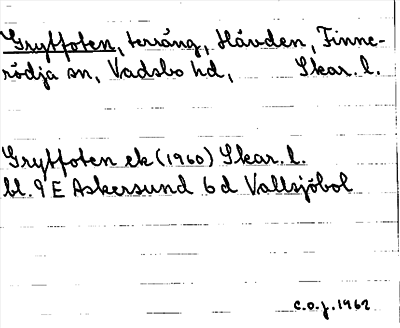 Grytfoten, terräng, Håvden, Finne-
rödja sn, Vadsbo hd, Skar. l.
Grytfoten ek (1960) Skar. l.
bl. 9 E Askersund 6 d Vallsjöbol
C.O.J. 1962